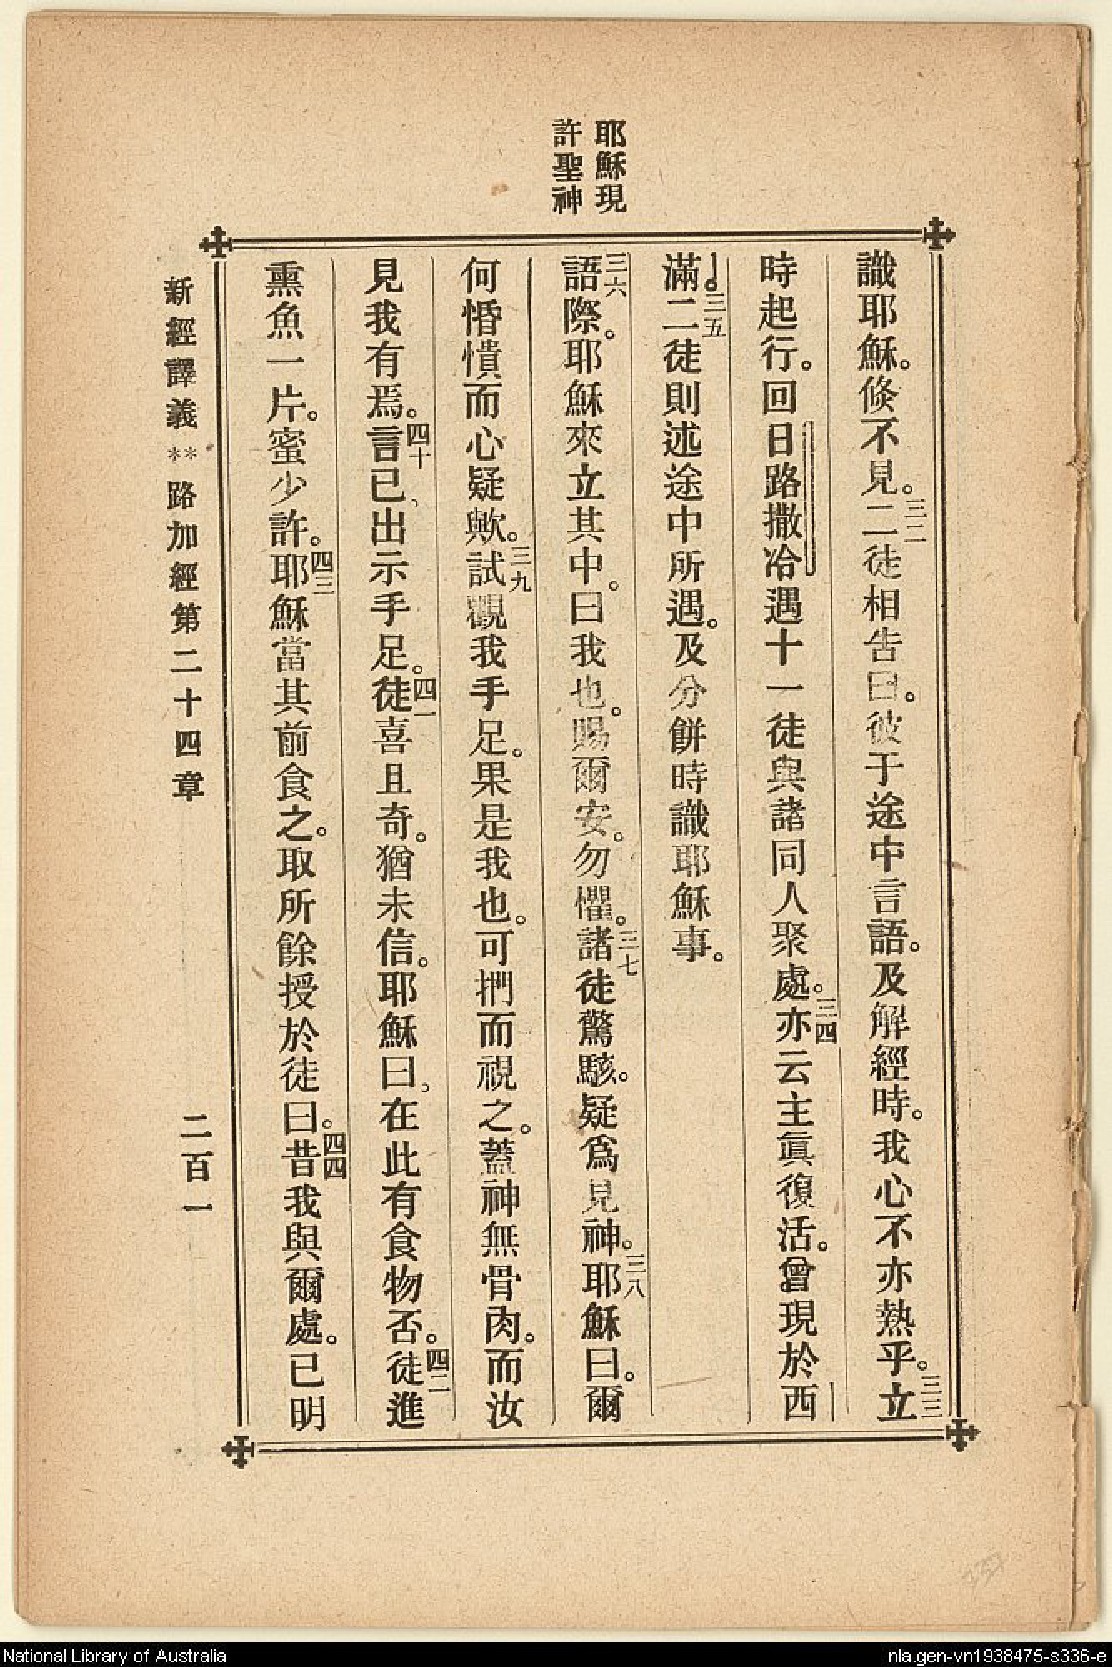 耶穌現
許聖神
識耶穌。倐不見。三二二徒相告曰。彼于途中言語。及解經時。我心不亦熱乎。三三立
時起行。回日路撒冾遇十一徒與諸同人聚處。三四亦云主眞復活。曾現於西
滿。三五二徒則述途中所遇。及分餅時識耶穌事。
三六語際。耶穌來立其中。曰我也。賜爾安。勿懼。三七諸徒驚駭。疑爲見神。三八耶穌曰。爾
何惛憒而心疑歟。三九試觀我手足。果是我也。可捫而視之。蓋神無骨肉。而汝
見我有焉。四十言已、出示手足。四一徒喜且奇。猶未信。耶穌曰、在此有食物否。四二徒進
熏魚一片。蜜少許。四三耶穌當其前食之。取所餘授於徒曰。四四昔我與爾處。已明
新經譯義**路加經第二十四章 二百一
National Library of Australia
nla.gen-vn1938475-s336-e